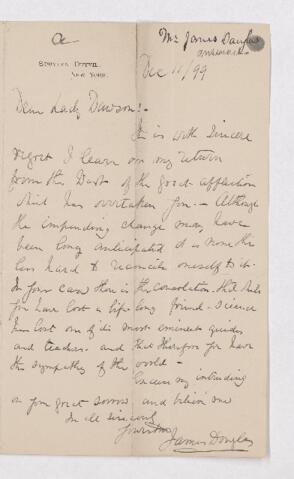 a
Mr James Douglas
answered
SPUYTEN DUYVIL,
NEW YORK.
Dec 11/99
Dear Lady Dawson:-
It is with sincere
regret I learn on my return
from the West of the great affliction
which has overtaken you - Although
the impending change may have
been long anticipated it is none the
less hard to reconcile oneself to it.
In your case there is the consolation that while
you have lost a life long friend - Science
has lost one of its most eminent guides
and teachers - and that therefore you have
the sympathy of the world -
Excuse my intruding
on your great sorrow and believe me
In all sincerity
Yours truly
James Douglas